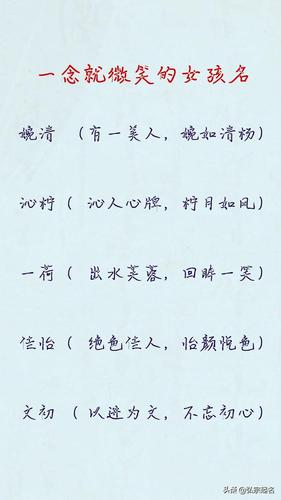 一念就微笑的女孩名
婉清 （有一美人，婉如清杨）
沁柠（ 沁人心脾，柠月如风）
一荷（ 出水芙蓉，回眸一笑）
佳怡（ 绝色佳人，怡颜悦色）
文初（ 以逊为文，不忘初心）
头条 @弘宗起名